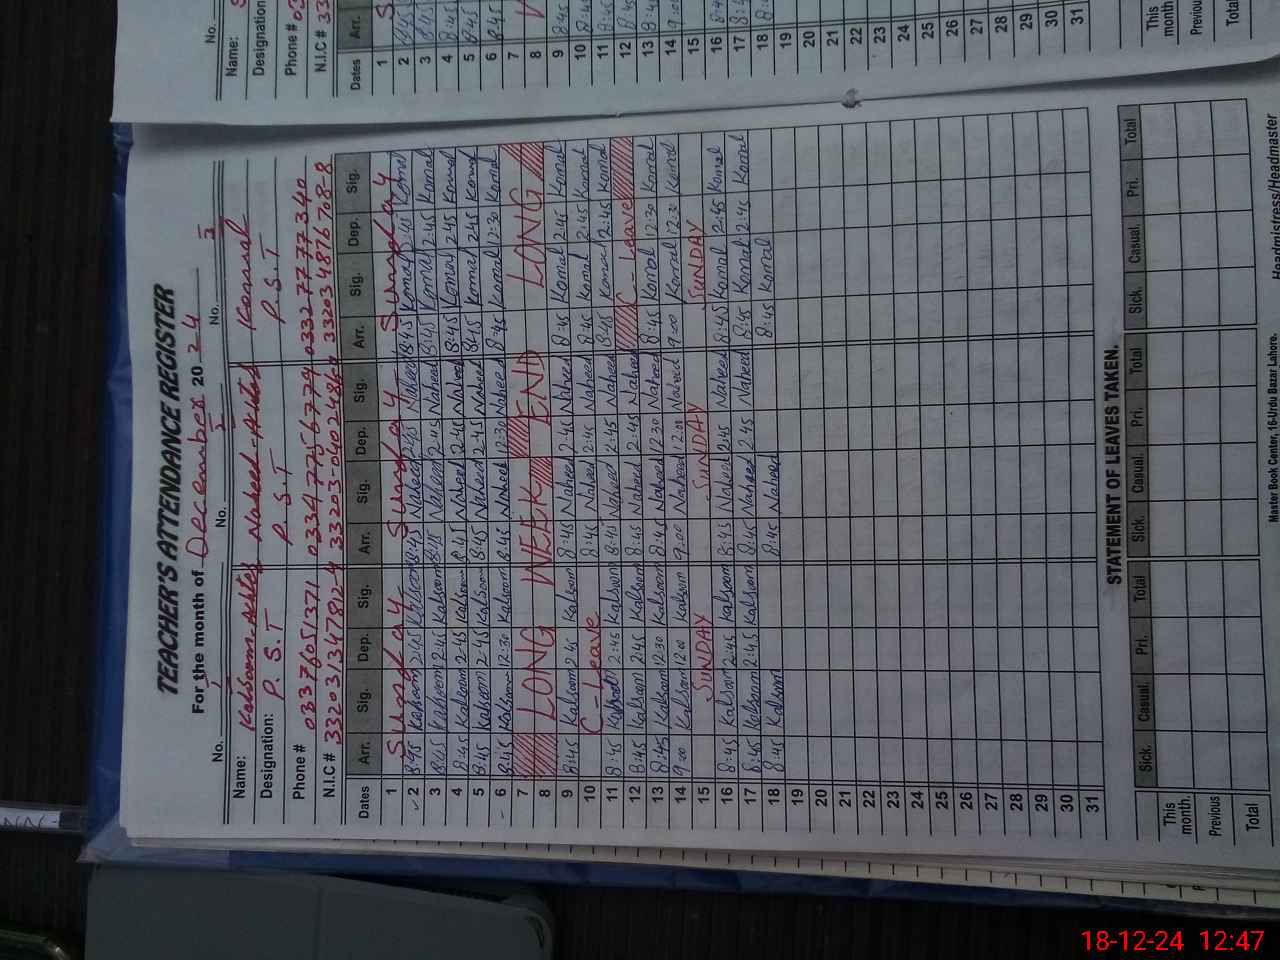 TEACHER'S ATTENDANCE REGISTER
For the month of December 20 24
No. 1 No. 2 No. 3
Name: Kalsoom Akhter Naheed Akhter Komal
Designation: P.S.T P.S.T P.S.T
Phone # 03376051371 03347756774 03327777340
N.I.C # 33203 4876708-8
Dates Arr. Sig. Dep. Sig. Arr. Sig. Dep. Sig. Arr. Sig. Dep. Sig.
1 Sunday Sunday Sunday
2 8:45 Kalsoom 2:45 Kalsoom 8:45 Naheed 2:45 Naheed 8:45 Komal 2:45 Komal
3 8:45 Kalsoom 2:45 Kalsoom 8:45 Naheed 2:45 Naheed 8:45 Komal 2:45 Komal
4 8:45 Kalsoom 2:45 Kalsoom 8:45 Naheed 2:45 Naheed 8:45 Komal 2:45 Komal
5 8:45 Kalsoom 2:45 Kalsoom 8:45 Naheed 2:45 Naheed 8:45 Komal 2:45 Komal
6 8:45 Kalsoom 12:30 Kalsoom 8:45 Naheed 12:30 Naheed 8:45 Komal 12:30 Komal
7
8 LONG WEAK END LONG
9 8:45 Kalsoom 2:45 Kalsoom 8:45 Naheed 2:45 Naheed 8:45 Komal 2:45 Komal
10 C-Leave 8:45 Naheed 2:45 Naheed 8:45 Komal 2:45 Komal
11 8:45 Kalsoom 2:45 Kalsoom 8:45 Naheed 2:45 Naheed 8:45 Komal 2:45 Komal
12 8:45 Kalsoom 2:45 Kalsoom 8:45 Naheed 2:45 Naheed C-Leave
13 8:45 Kalsoom 12:30 Kalsoom 8:45 Naheed 12:30 Naheed 8:45 Komal 12:30 Komal
14 9:00 Kalsoom 12:00 Kalsoom 9:00 Naheed 12:00 Naheed 9:00 Komal 12:30 Komal
15 SUNDAY SUNDAY SUNDAY
16 8:45 Kalsoom 2:45 Kalsoom 8:45 Naheed 2:45 Naheed 8:45 Komal 2:45 Komal
17 8:45 Kalsoom 2:45 Kalsoom 8:45 Naheed 2:45 Naheed 8:45 Komal 2:45 Komal
18 8:45 Kalsoom 8:45 Naheed 8:45 Komal
19
20
21
22
23
24
25
26
27
28
29
30
31
STATEMENT OF LEAVES TAKEN.
Sick. Casual. Pri. Total Sick. Casual. Pri. Total Sick. Casual. Pri. Total
This month.
Previous
Total
Master Book Center, 16-Urdu Bazar Lahore. Headmistress/Headmaster
No.
Name:
Designation
Phone # 03
N.I.C # 33
Dates Arr.
1 S
2 8:45
3 8:45
4 8:45
5 8:45
6 8:45
7
8
9 8:45
10 8:45
11 8:45
12 8:45
13 8:45
14 9:00
15
16 8:4
17 8:4
18 8:
19
20
21
22
23
24
25
26
27
28
29
30
31
This month
Previous
Total
18-12-24 12:47